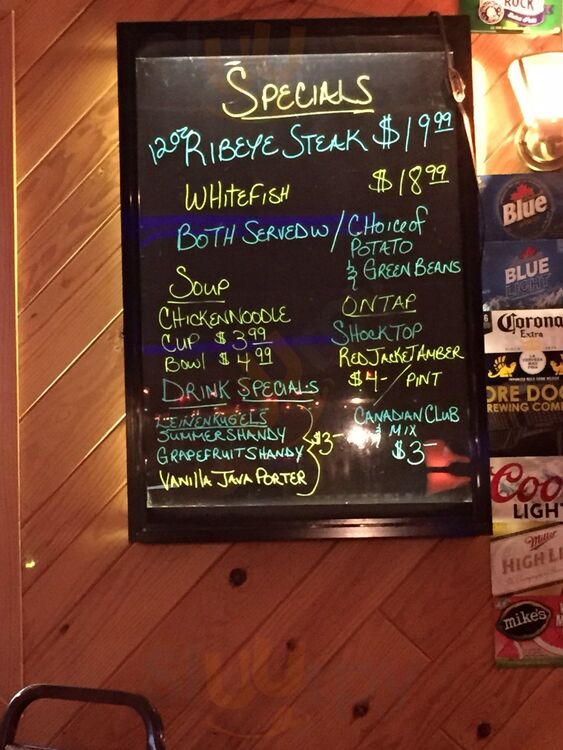 SPECIALS
12oz RIBEYE STEAK $19.99
WHITEFISH $18.99
BOTH SERVED W/ CHOICE OF
POTATO
& GREEN BEANS
SOUP
CHICKEN NOODLE
CUP $3.99
BOWL $4.99
ON TAP
SHOCK TOP
RED JACKET AMBER
$4- / PINT
DRINK SPECIALS
LEINENKUGELS
SUMMER SHANDY
GRAPEFRUIT SHANDY
VANILLA JAVA PORTER
$3-
CANADIAN CLUB
& MIX
$3-
ROCK
Blue
BLUE
LIGHT
Corona
Extra
ORE DOG
REWING COMP
Coo
LIGHT
Miller
HIGH LI
mike's